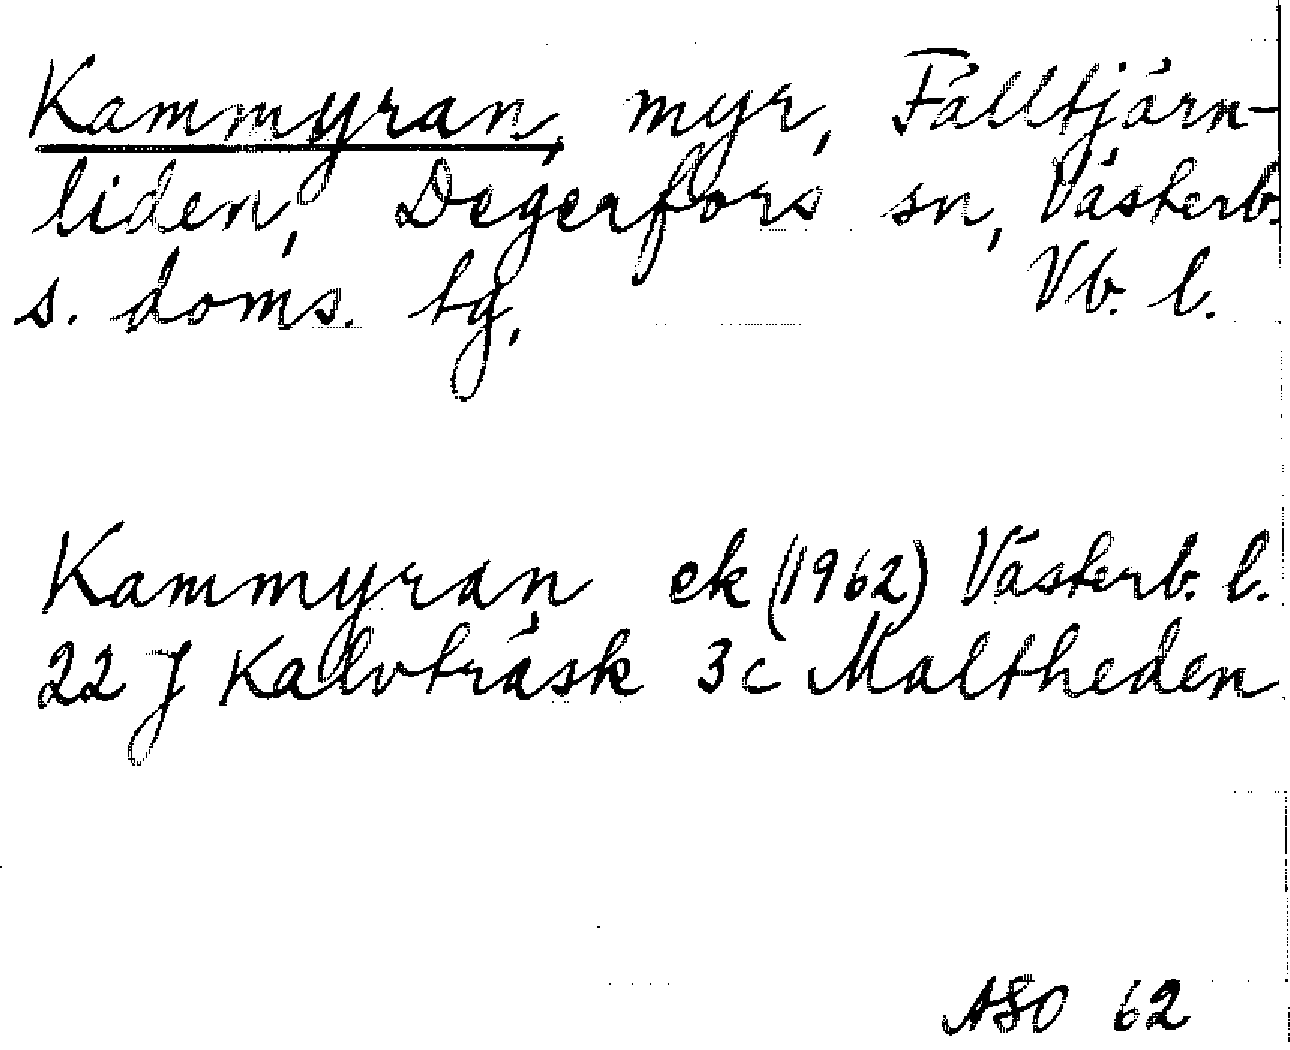 Kammyran, myr, Fälltjärn-
liden, Degerfors sn, Västerb.
s. doms. tg,   Vb. l.
Kammyran ek (1962) Västerb. l.
22 J Kalvträsk 3c Maltheden
ASO 62